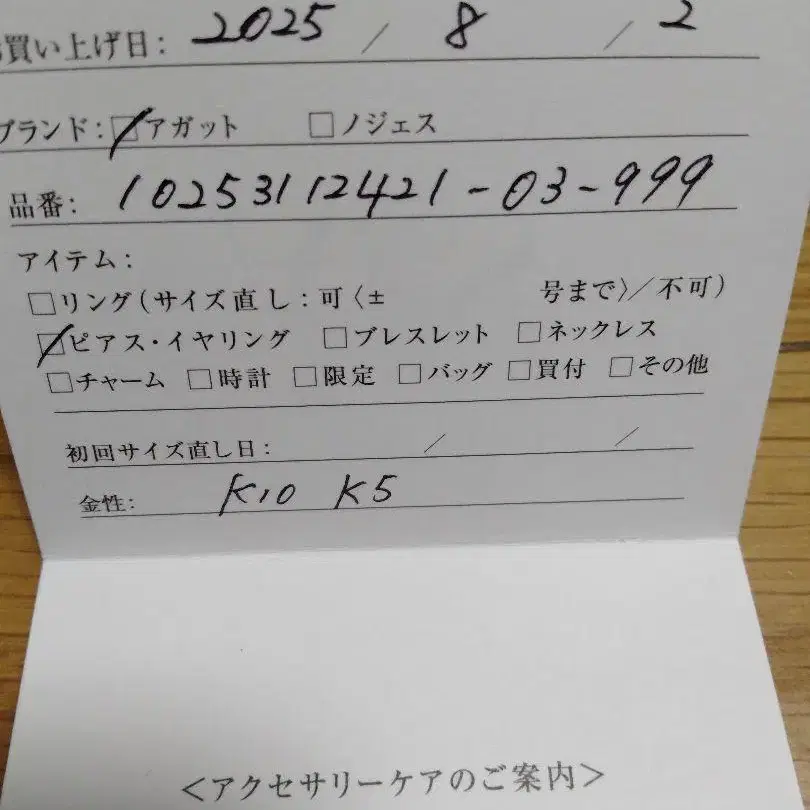 買い上げ日: 2025 / 8 / 2
ブランド: ☑アガット □ノジェス
品番: 10253112421-03-999
アイテム:
□リング(サイズ直し:可〈± 号まで〉/不可)
☑ピアス・イヤリング □ブレスレット □ネックレス
□チャーム □時計 □限定 □バッグ □買付 □その他
初回サイズ直し日: / /
金性: K10 K5
<アクセサリーケアのご案内>